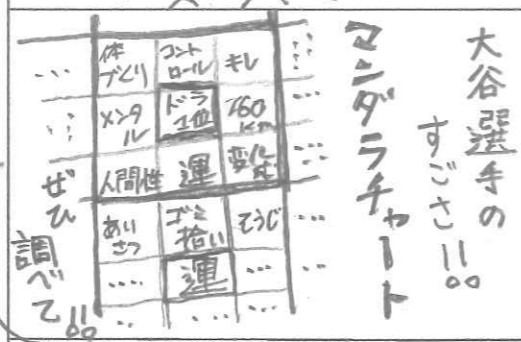 大谷選手の
すごさ!!
マンダラチャート
体づくり
コントロール
キレ
メンタル
ドラ1位
160km
人間性
運
変化球
あいさつ
ゴミ拾い
そうじ
運
ぜひ
調べて!!